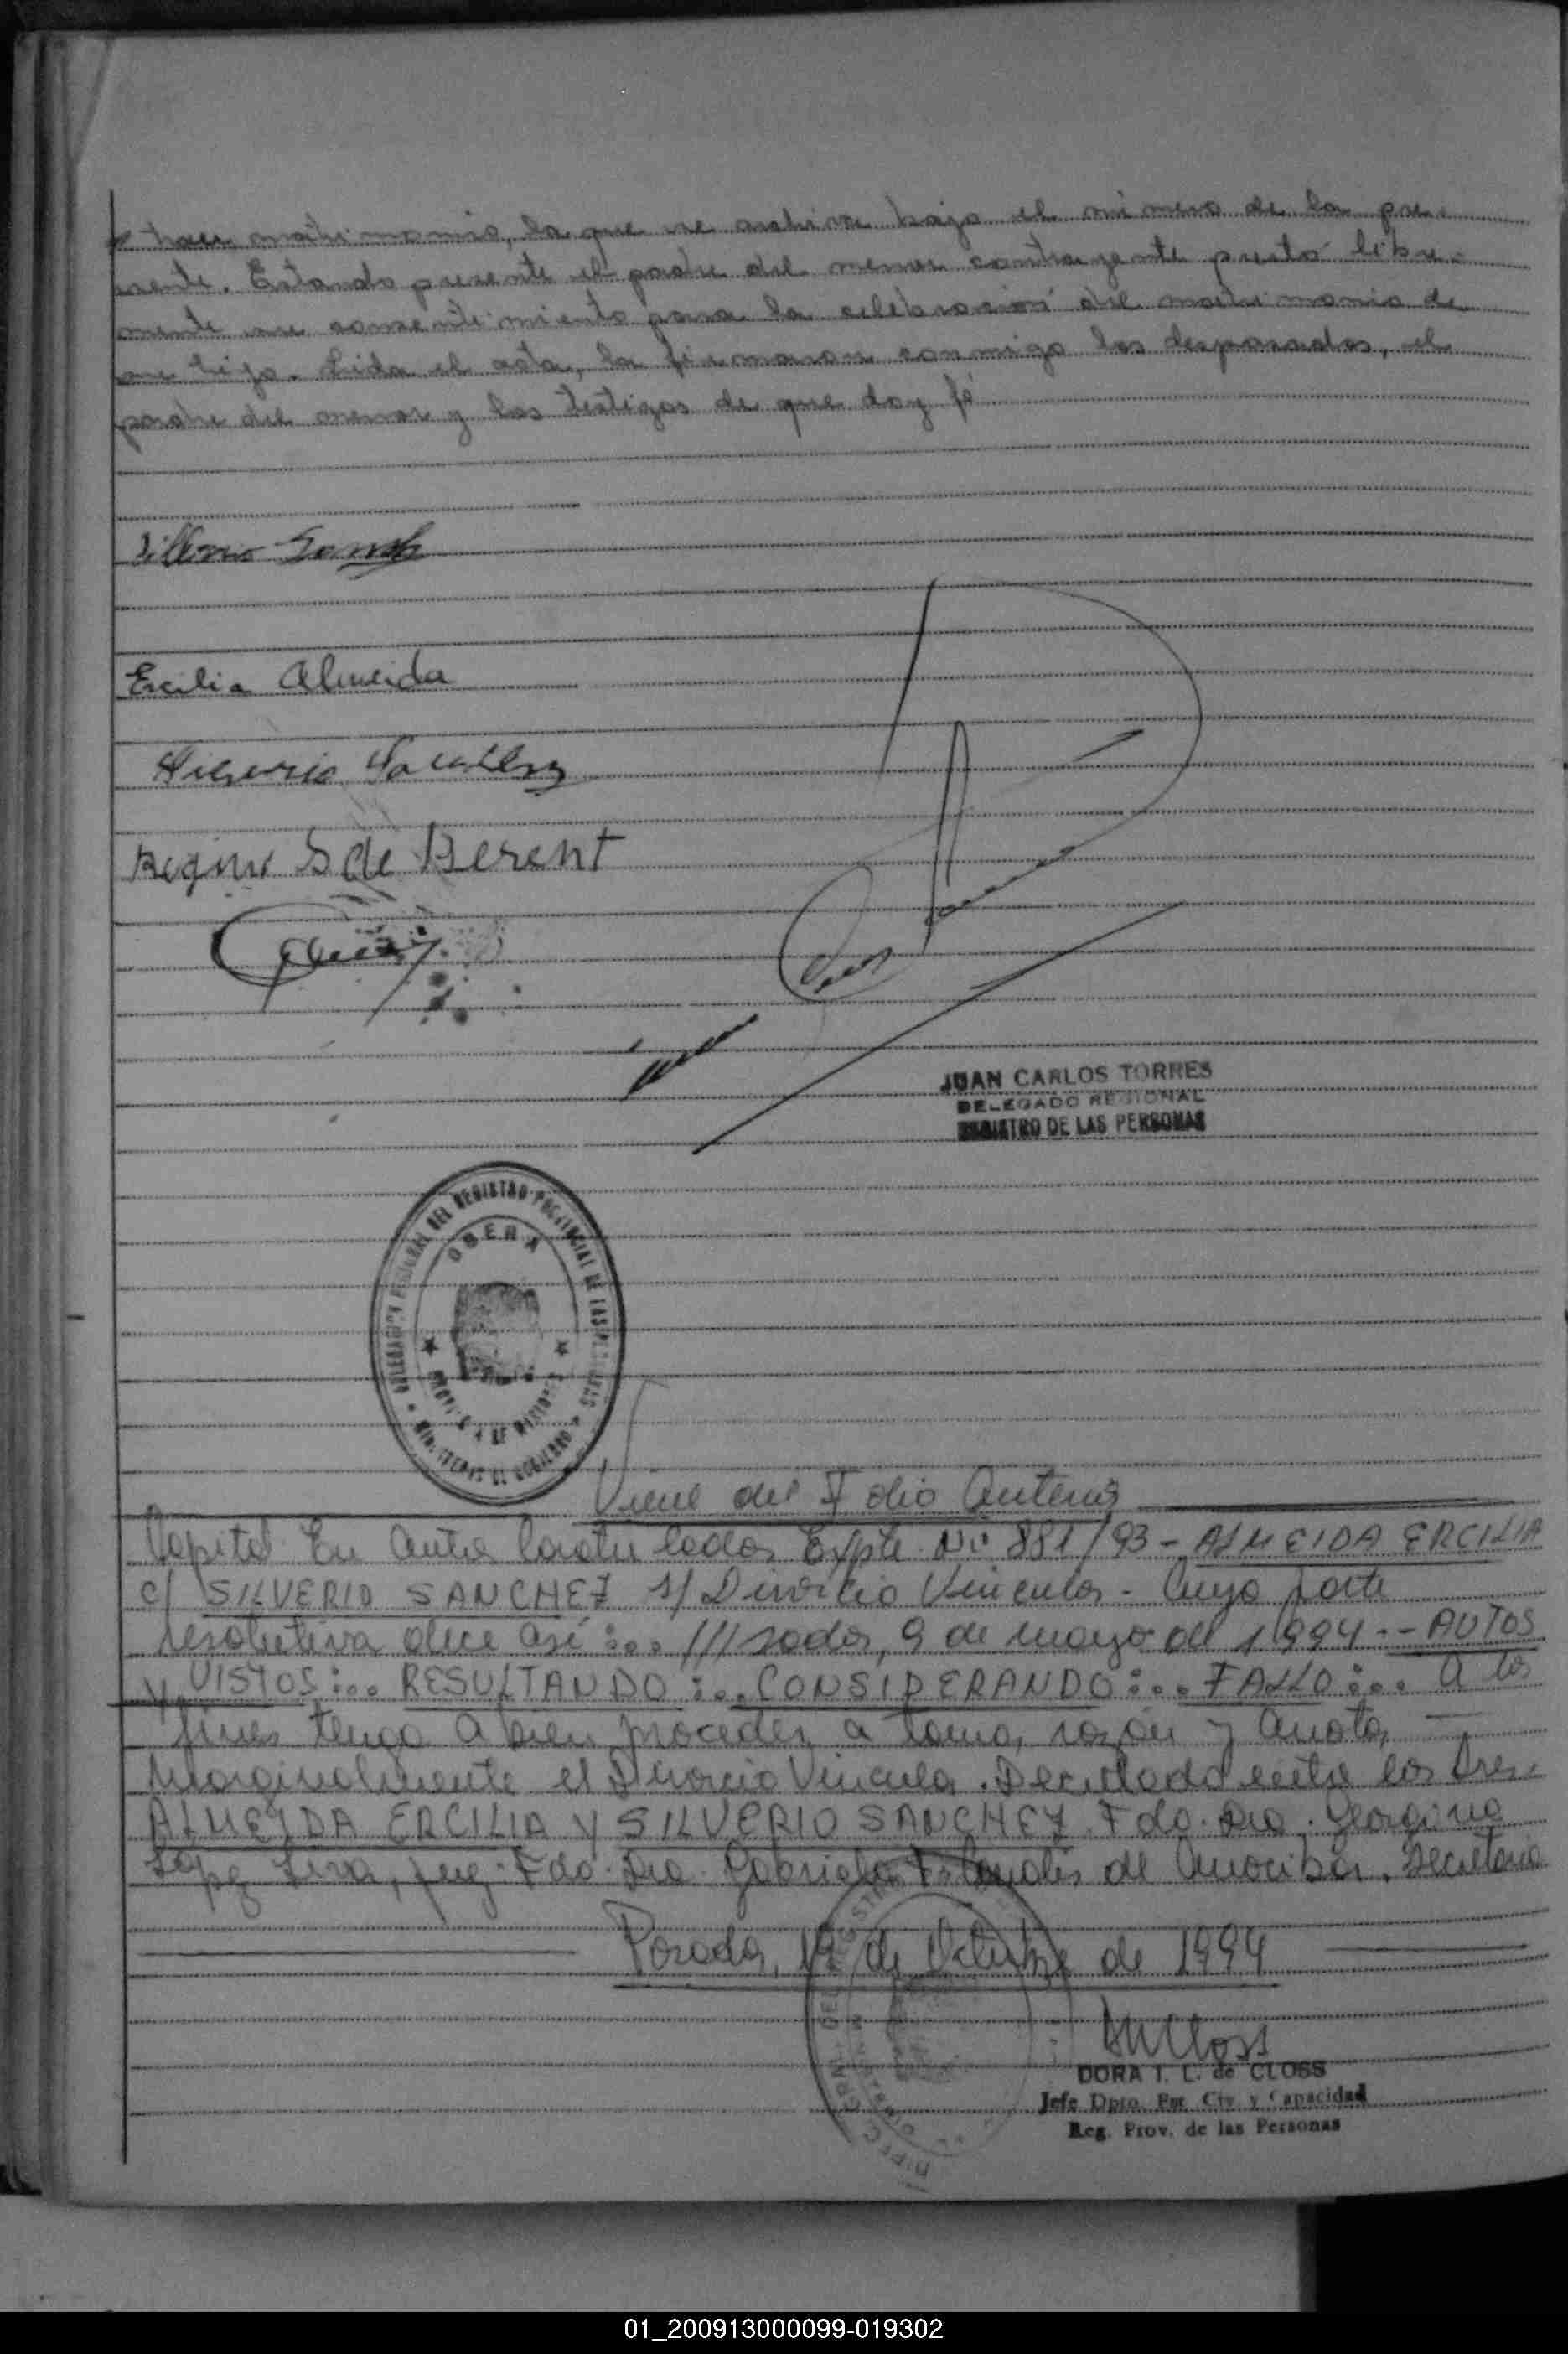 traer matrimonio, la que se archiva bajo el número de la pre-
sente. Estando presente el padre del menor contrayente prestó libre-
mente su consentimiento para la celebración del matrimonio de
su hijo. Leida el acta, la firmaron conmigo los desposados, el
padre del menor y los testigos de que doy fé
Silverio Sanchez
Ercilia Almeida
S de Berent
JUAN CARLOS TORRES
DELEGADO REGIONAL
REGISTRO DE LAS PERSONAS
DELEGACION REGIONAL DEL REGISTRO PROVINCIAL DE LAS PERSONAS
OBERA
PROVINCIA DE MISIONES
MINISTERIO DE GOBIERNO
Viene del Folio Anterior
Capital. En Autos Caratulados Expte. Nº 881/93 - ALMEIDA ERCILIA
c/ SILVERIO SANCHEZ s/ Divorcio Vincular - Cuya parte
resolutiva dice así :... ///sadas, 9 de mayo del 1994.- AUTOS
y VISTOS:... RESULTANDO:... CONSIDERANDO:... FALLO:... A los
fines tengo a bien proceder a tomar razón y Anotar
Marginalmente el Divorcio Vincular. Decretado entre los Sres.
ALMEIDA ERCILIA Y SILVERIO SANCHEZ. Fdo. Dra. Georgina
Lopez Liva, Juez. Fdo. Dra. Gabriela F. Canales de Secretaria
Posadas, 19 de Octubre de 1994
DORA I. L. de CLOSS
Jefe Dpto. Est. Civ. y Capacidad
Reg. Prov. de las Personas
01_200913000099-019302